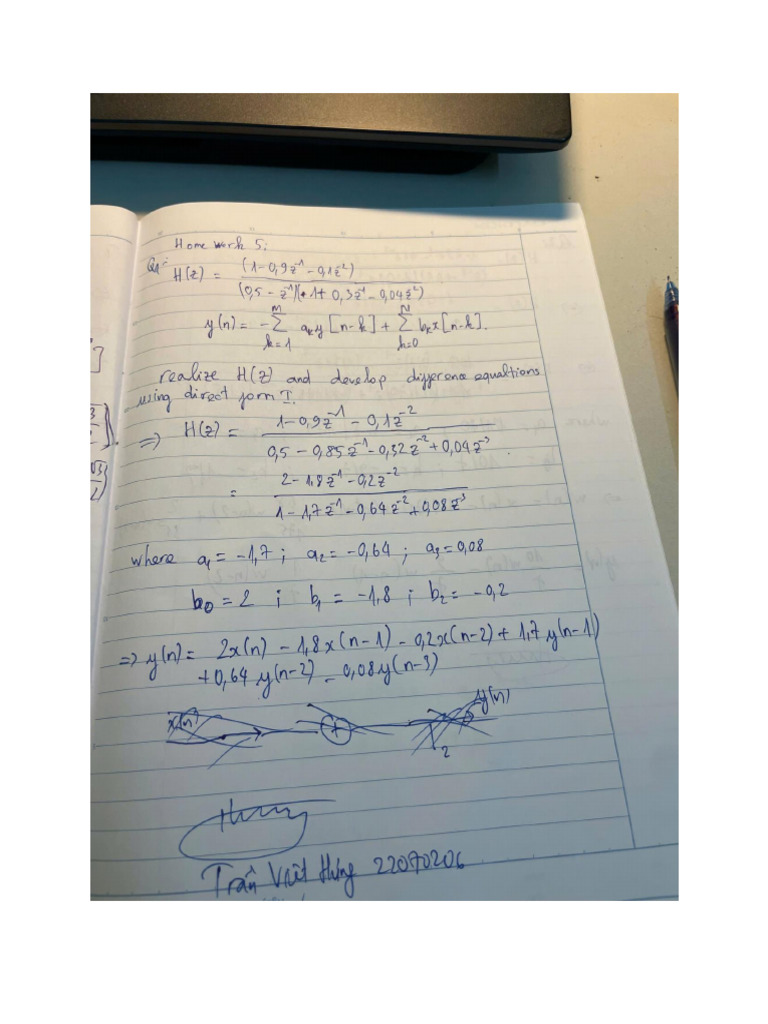 Home work 5:
Q1:
H(z) = (1-0,9z⁻¹-0,1z⁻²) / (0,5 - z⁻¹)(1+ 0,3z⁻¹-0,04z⁻²)
y(n)= -∑ₖ₌₁ᴹ aₖy[n-k] + ∑ₖ₌₀ᴺ bₖx[n-k].
realize H(z) and develop difference equaltions
using direct form I.
=> H(z) = 1-0,9z⁻¹ - 0,1z⁻² / 0,5 - 0,85z⁻¹-0,32z⁻²+0,04z⁻³.
= 2-1,8z⁻¹-0,2z⁻² / 1-1,7z⁻¹-0,64z⁻²+0,08z⁻³
where a₁= -1,7 ; a₂= -0,64 ; a₃=0,08
b₀=2 ; b₁ = -1,8 ; b₂= -0,2
=> y(n)= 2x(n) - 1,8x(n-1) - 0,2x(n-2)+ 1,7y(n-1)
+0,64y(n-2) - 0,08y(n-3)
x(n) + y(n)
2
Trần Việt Hưng 22070206